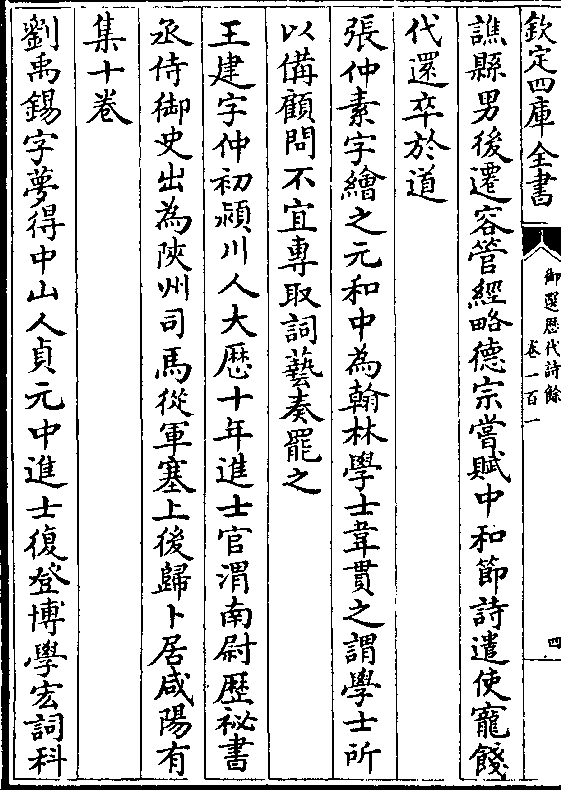 欽定四庫全書
御選歷代詩餘
卷一百一
四
譙縣男後遷容管經略德宗嘗賦中和節詩遣使寵餞
代還卒於道
張仲素字繪之元和中為翰林學士韋貫之謂學士所
以備顧問不宜專取詞藝奏罷之
王建字仲初潁川人大歷十年進士官渭南尉歷祕書
丞侍御史出為陝州司馬從軍塞上後歸卜居咸陽有
集十卷
劉禹錫字夢得中山人貞元中進士復登博學宏詞科